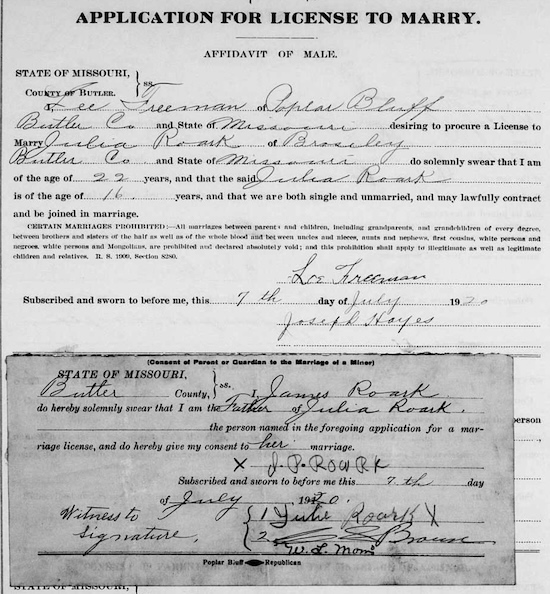 APPLICATION FOR LICENSE TO MARRY.
AFFIDAVIT OF MALE.
STATE OF MISSOURI, } ss.
COUNTY OF BUTLER.
I, Lee Freeman of Poplar Bluff
Butler Co and State of Missouri desiring to procure a License to
Marry Julia Roark of Broseley
Butler Co and State of Missouri do solemnly swear that I am
of the age of 22 years, and that the said Julia Roark
is of the age of 16 years, and that we are both single and unmarried, and may lawfully contract
and be joined in marriage.
CERTAIN MARRIAGES PROHIBITED:—All marriages between parents and children, including grandparents, and grandchildren of every degree,
between brothers and sisters of the half as well as of the whole blood and between uncles and nieces, aunts and nephews, first cousins, white persons and
negroes, white persons and Mongolians, are prohibited and declared absolutely void; and this prohibition shall apply to illegitimate as well as legitimate
children and relatives. R. S. 1909, Section 8280.
Lee Freeman
Subscribed and sworn to before me, this 7th day of July 1920
Joseph Hayes
(Consent of Parent or Guardian to the Marriage of a Minor)
STATE OF MISSOURI, } ss.
Butler County, I, James Roark
do hereby solemnly swear that I am the Father of Julia Roark.
the person named in the foregoing application for a mar-
riage license, and do hereby give my consent to her marriage.
X J. P. ROARK
Subscribed and sworn to before me this 7th day
of July 1920.
Witness to { 1 Julie Roark X
Signature, 2 Brown
W. L. Moms
Poplar Bluff Republican
STATE OF MISSOURI,